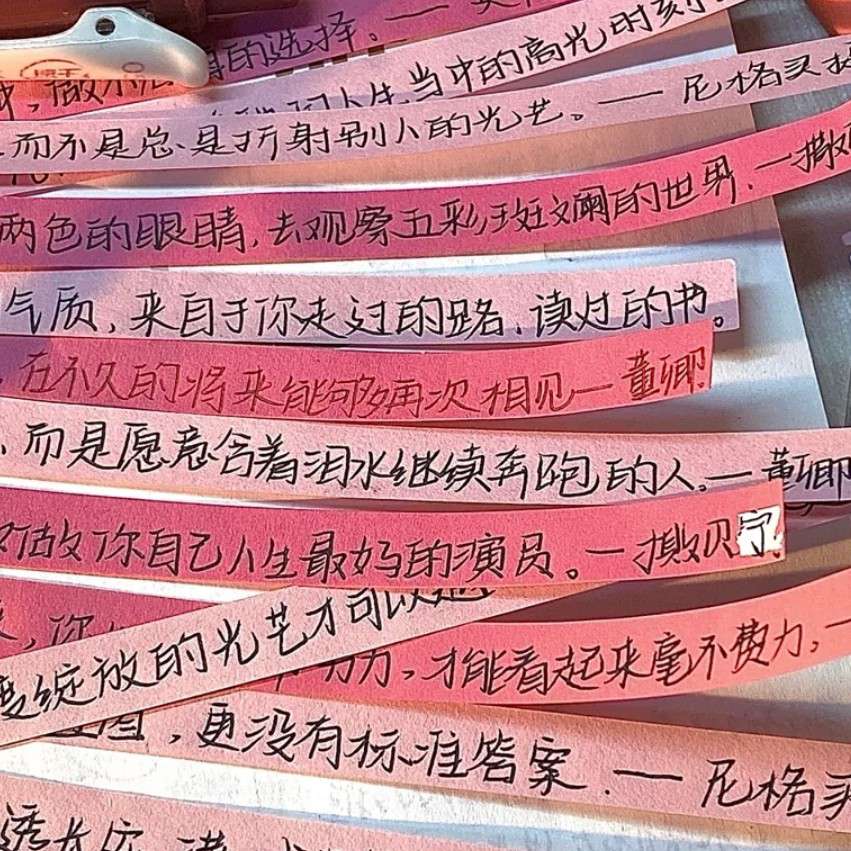 的选择。一
人生当中的高光时刻
而不是总是折射别人的光芒。一尼格买提
两色的眼睛,去观察五彩斑斓的世界.一撒
气质,来自于你走过的路、读过的书。
在不久的将来能够再次相见一董卿.
而是愿意含着泪水继续奔跑的人。一董卿
做你自己人生最好的演员。一撒贝宁.
,你
绽放的光芒才可以
力,才能看起来毫不费力。一
,更没有标准答案.一尼格买